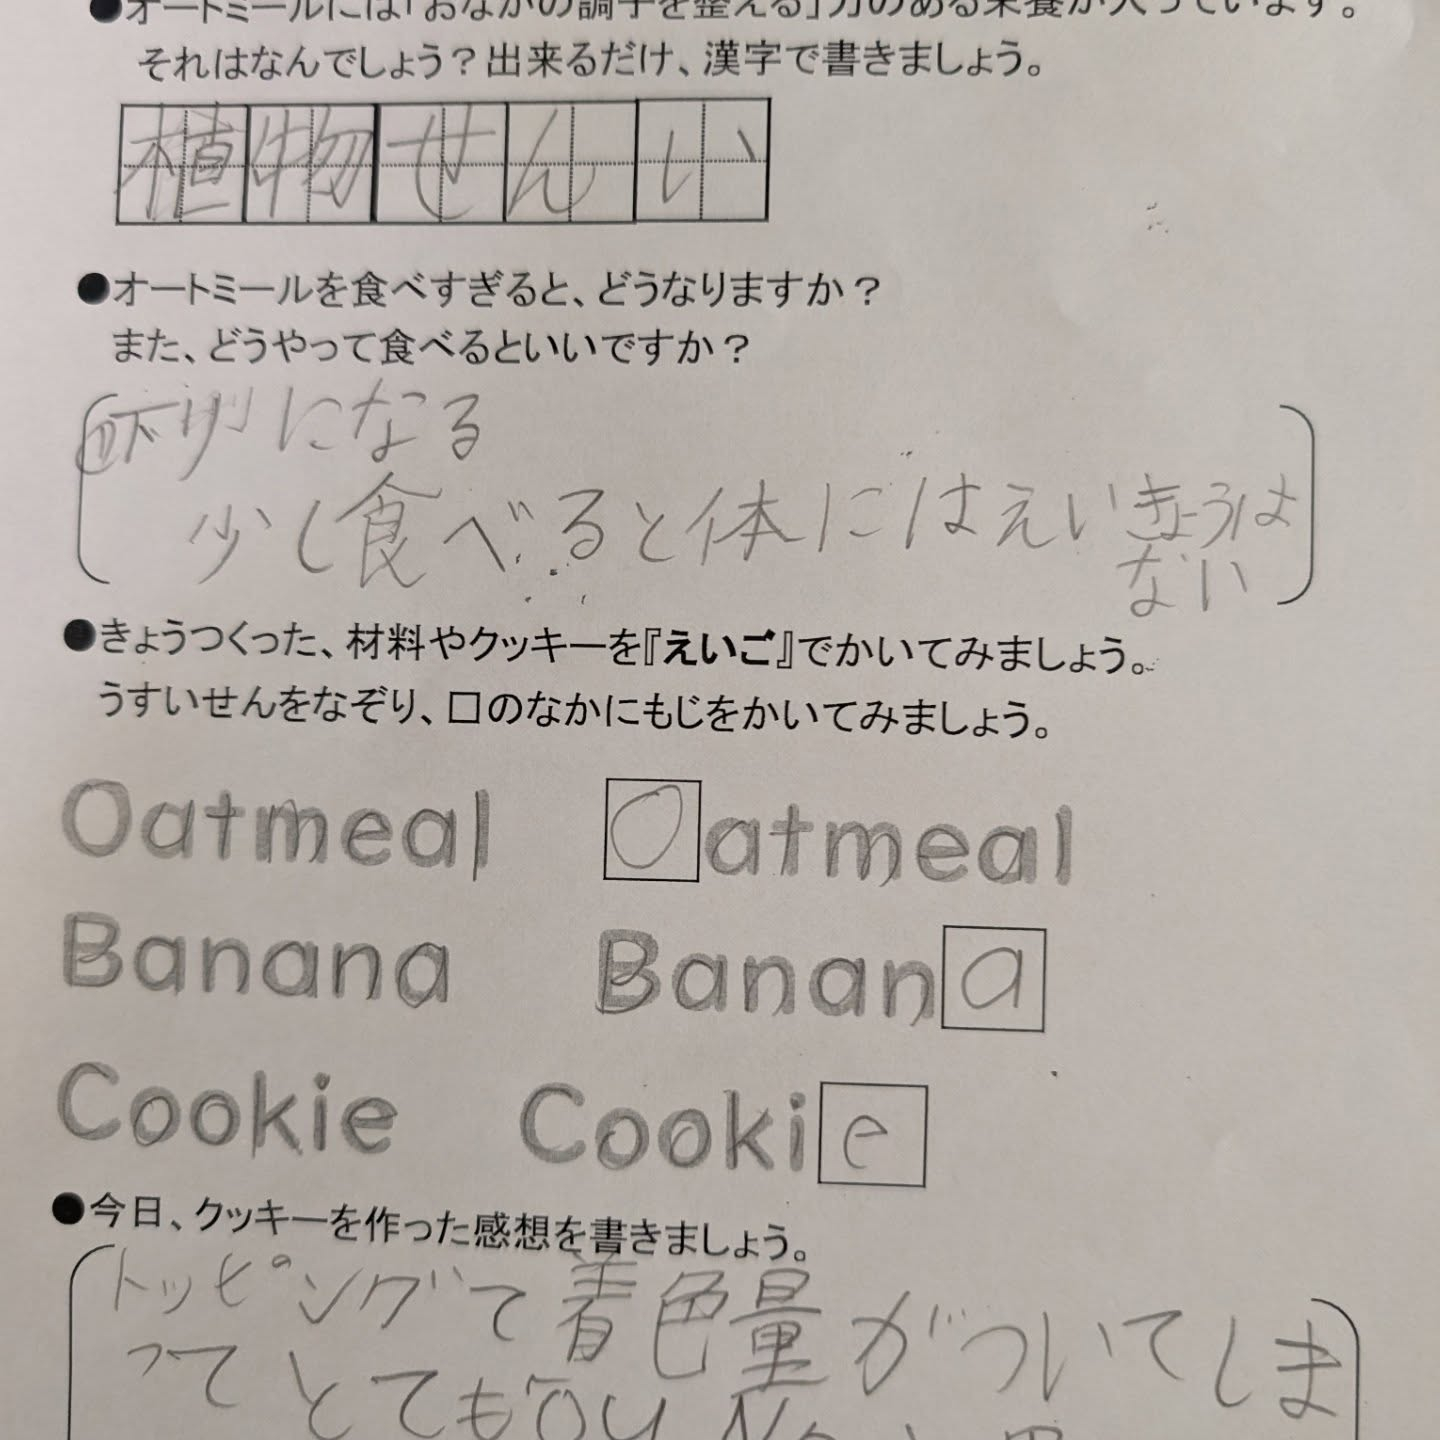 ●オートミールには「おなかの調子を整える」力のある栄養が入っています。
それはなんでしょう？出来るだけ、漢字で書きましょう。
植物せんい
●オートミールを食べすぎると、どうなりますか？
また、どうやって食べるといいですか？
下痢になる
少し食べると体にはえいきょうは
ない
●きょうつくった、材料やクッキーを『えいご』でかいてみましょう。
うすいせんをなぞり、口のなかにもじをかいてみましょう。
Oatmeal Oatmeal
Banana Banana
Cookie Cookie
●今日、クッキーを作った感想を書きましょう。
トッピングで着色量がついてしま
ってとても